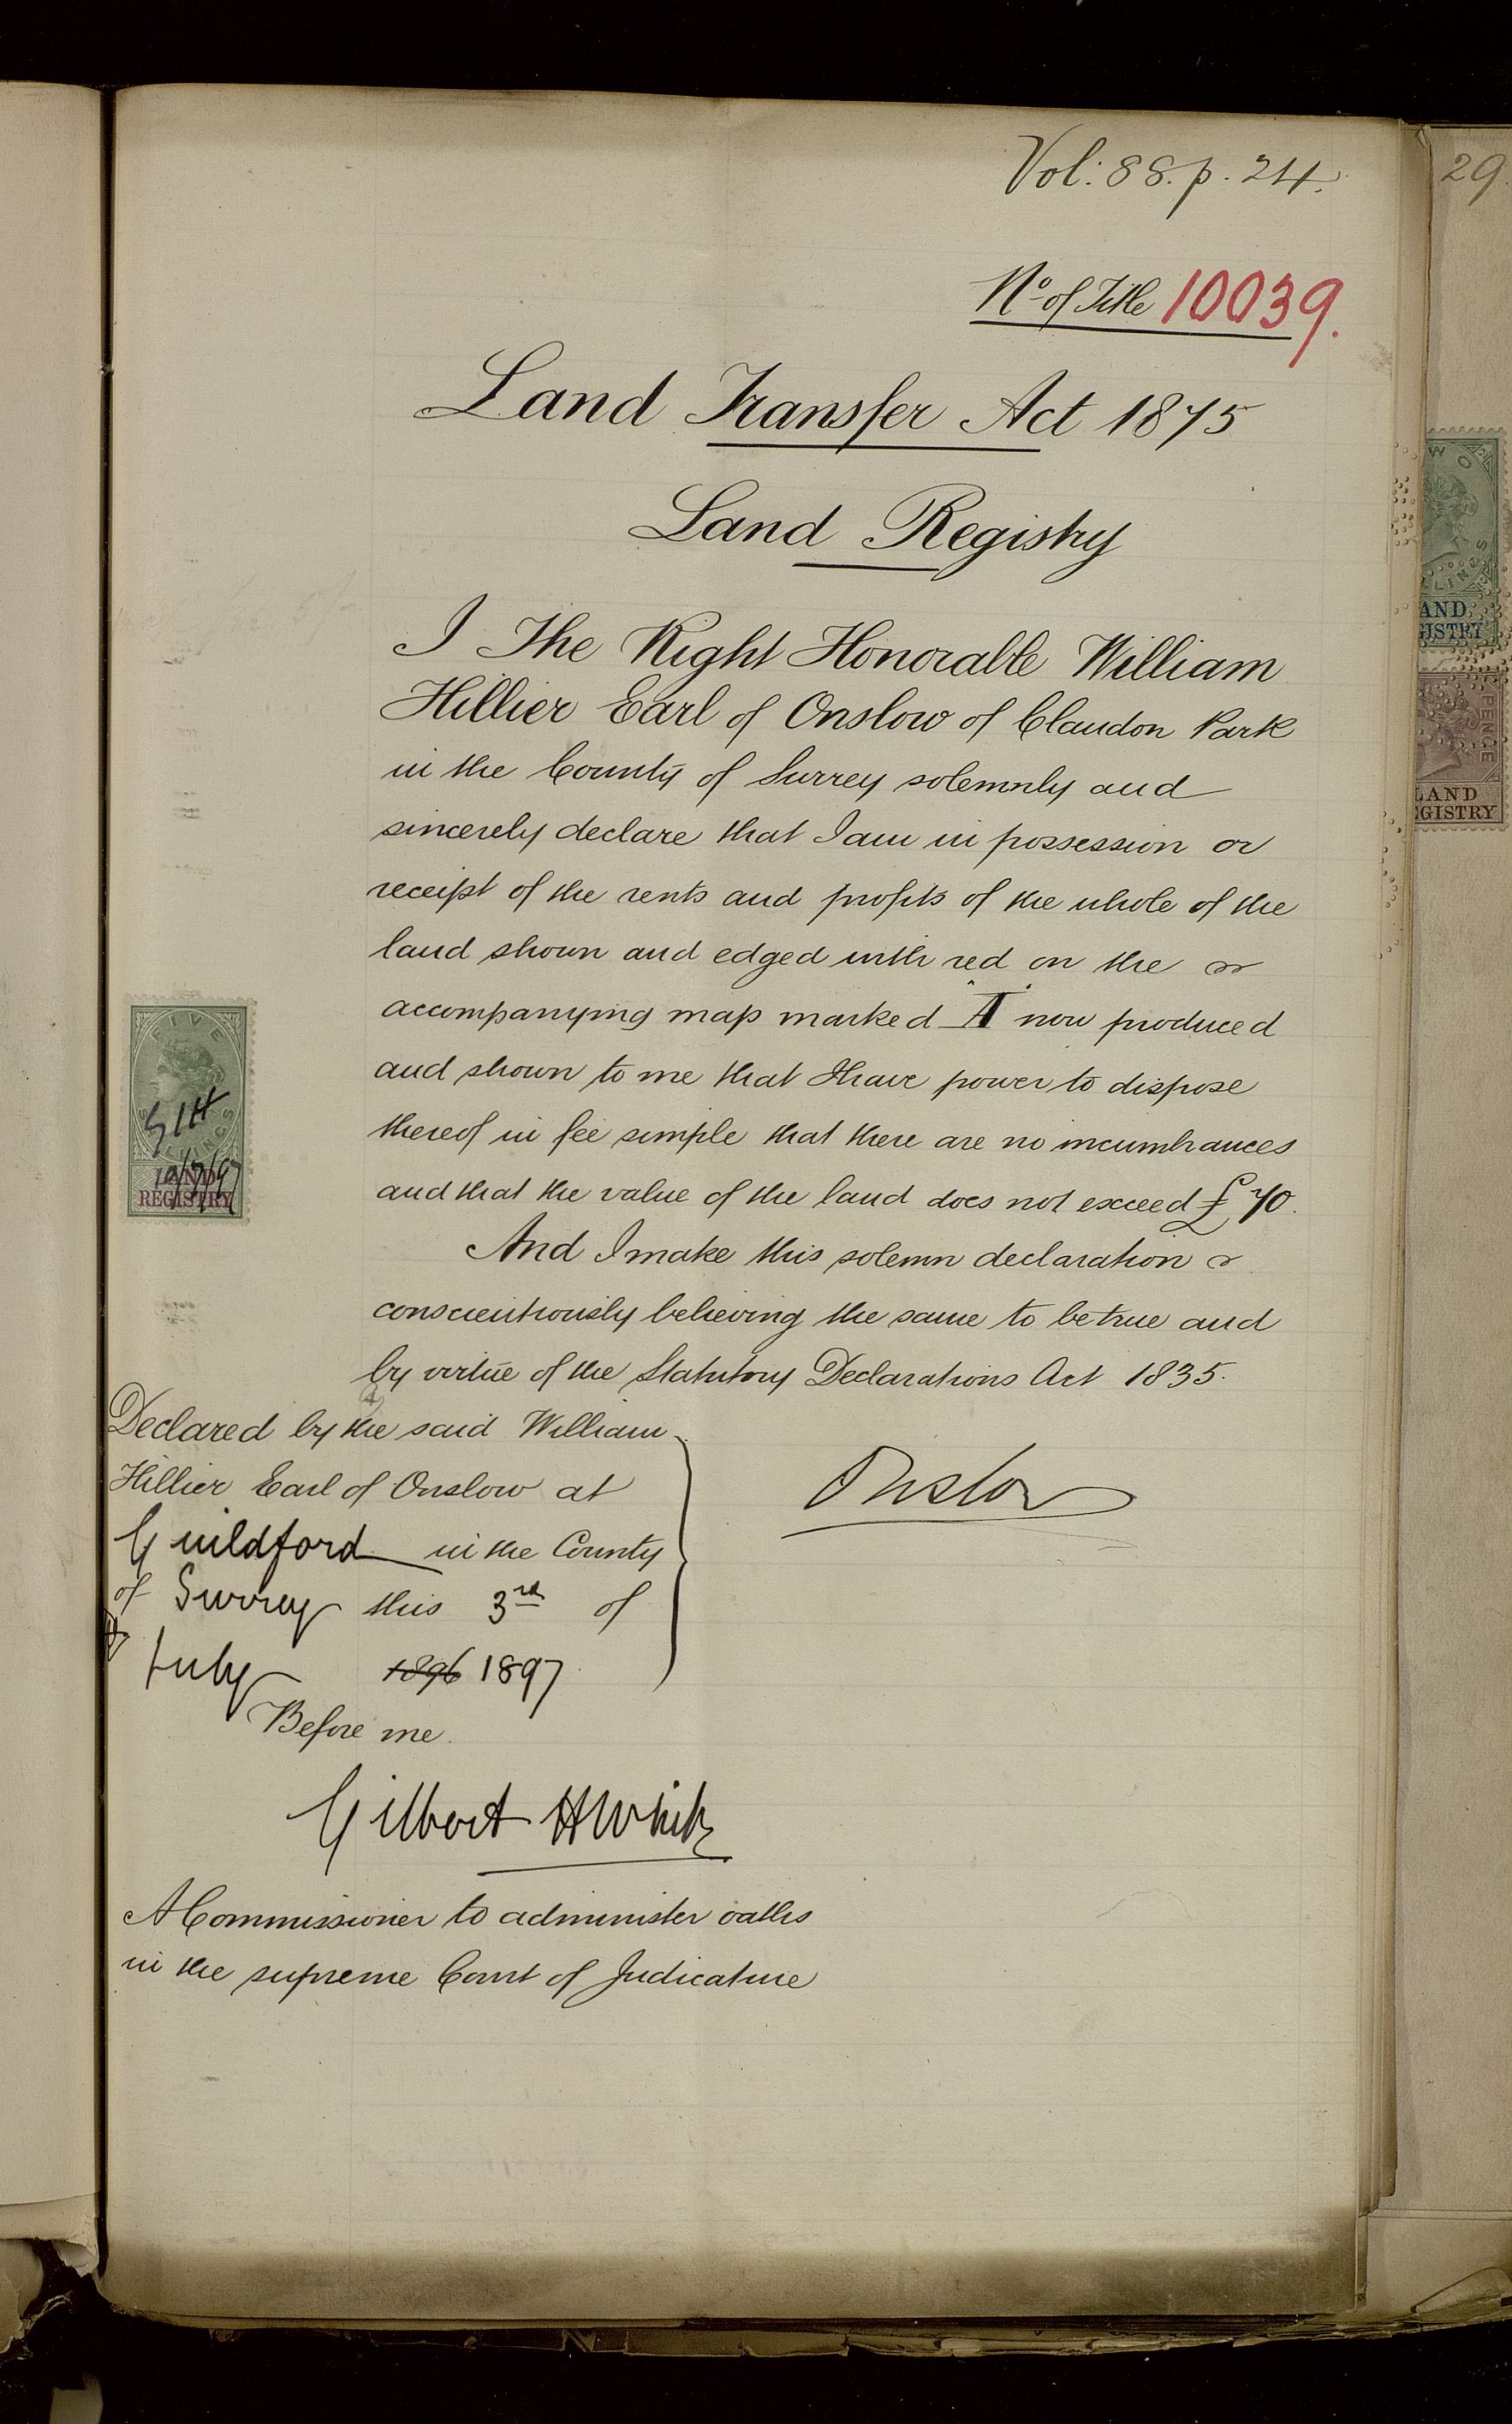 Vol: 88. p. 24.
29
No of Title 10039.
Land Transfer Act 1875
Land Registry
I The Right Honorable William
Hillier Earl of Onslow of Clandon Park
in the County of Surrey solemnly and
sincerely declare that I am in possession or
receipt of the rents and profits of the whole of the
land shown and edged with red on the
accompanying map marked "A" now produced
and shown to me that I have power to dispose
thereof in fee simple that there are no incumbrances
and that the value of the land does not exceed £70.
And I make this solemn declaration
conscientiously believing the same to be true and
by virtue of the Statutory Declarations Act 1835.
Declared by the said William
Hillier Earl of Onslow at
Guildford in the County
of Surrey this 3rd of
July 1896 1897
Before me.
Onslow
Gilbert H White
A Commissioner to administer oaths
in the supreme Court of Judicature
FIVE
SHILLINGS
10/7/97
LAND
REGISTRY
WO
LLINGS
AND
GISTRY
PENCE
LAND
EGISTRY